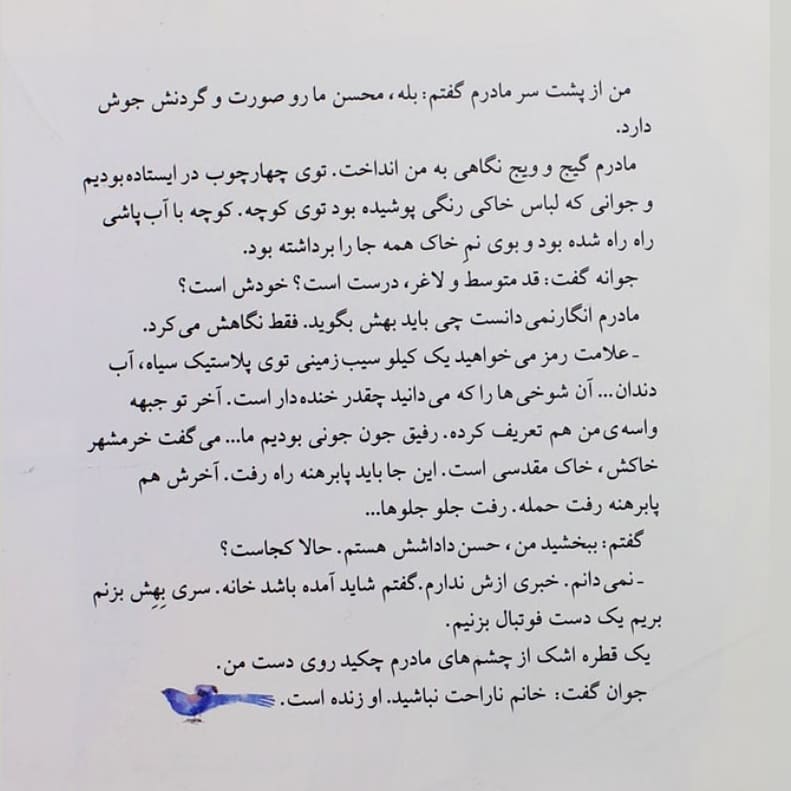 من از پشت سر مادرم گفتم: بله، محسن ما رو صورت و گردنش جوش
دارد.
مادرم گیج و ویج نگاهی به من انداخت. توی چهارچوب در ایستاده بودیم
و جوانی که لباس خاکی رنگی پوشیده بود توی کوچه. کوچه با آب‌پاشی
راه راه شده بود و بوی نمِ خاک همه جا را برداشته بود.
جوانه گفت: قد متوسط و لاغر، درست است؟ خودش است؟
مادرم انگار نمی‌دانست چی باید بهش بگوید. فقط نگاهش می‌کرد.
ـ علامت رمز می‌خواهید یک کیلو سیب‌زمینی توی پلاستیک سیاه، آب
دندان... آن شوخی‌ها را که می‌دانید چقدر خنده‌دار است. آخر تو جبهه
واسه‌ی من هم تعریف کرده. رفیق جون جونی بودیم ما... می‌گفت خرمشهر
خاکش، خاک مقدسی است. این جا باید پابرهنه راه رفت. آخرش هم
پابرهنه رفت حمله. رفت جلو جلوها...
گفتم: ببخشید من، حسن داداشش هستم. حالا کجاست؟
ـ نمی‌دانم. خبری ازش ندارم. گفتم شاید آمده باشد خانه. سری بِهِش بزنم
بریم یک دست فوتبال بزنیم.
یک قطره اشک از چشم‌های مادرم چکید روی دست من.
جوان گفت: خانم ناراحت نباشید. او زنده است.